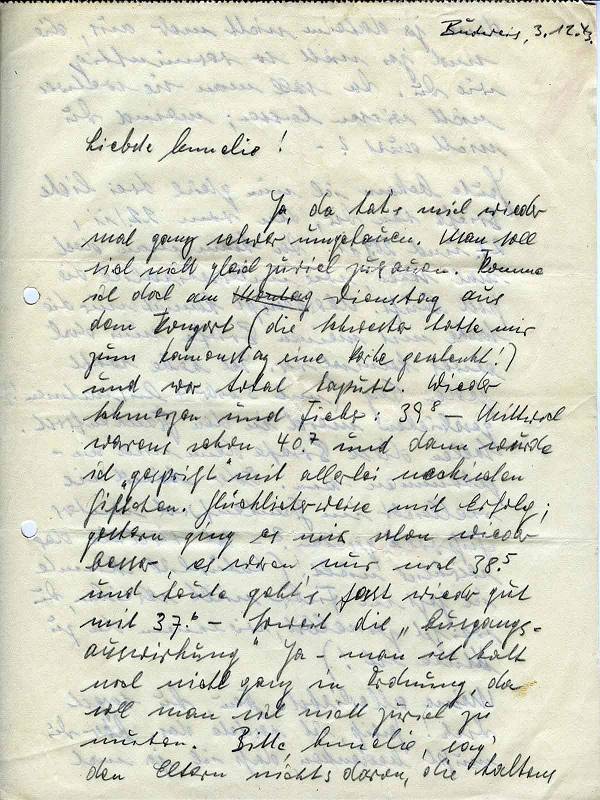 Budweis, 3.12.43.
Liebste Annelie!
Ja, da hat's mich wieder
mal ganz schwer umgehauen. Man soll
sich nicht gleich zuviel zutrauen. Komme
ich doch am Montag Dienstag aus
dem Konzert (die Schwester hatte mir
zum Namenstag eine Karte geschenkt!)
und war total kaputt. Wieder
Schmerzen und Fieber: 39⁸ – Mittwoch
warens schon 40.⁷ und dann wurde
ich „gespritzt" mit allerlei neckischen
Giftchen. Glücklicherweise mit Erfolg;
gestern ging es mir schon wieder
besser, es waren nur noch 38.⁵
und heute geht's fast wieder gut
mit 37.⁶ – Soweit die „Ausgangs-
auswirkung" Ja – man ist halt
noch nicht ganz in Ordnung, da
soll man sich nicht zuviel zu
muten. Bitte, Annelie, sag'
den Eltern nichts davon, die